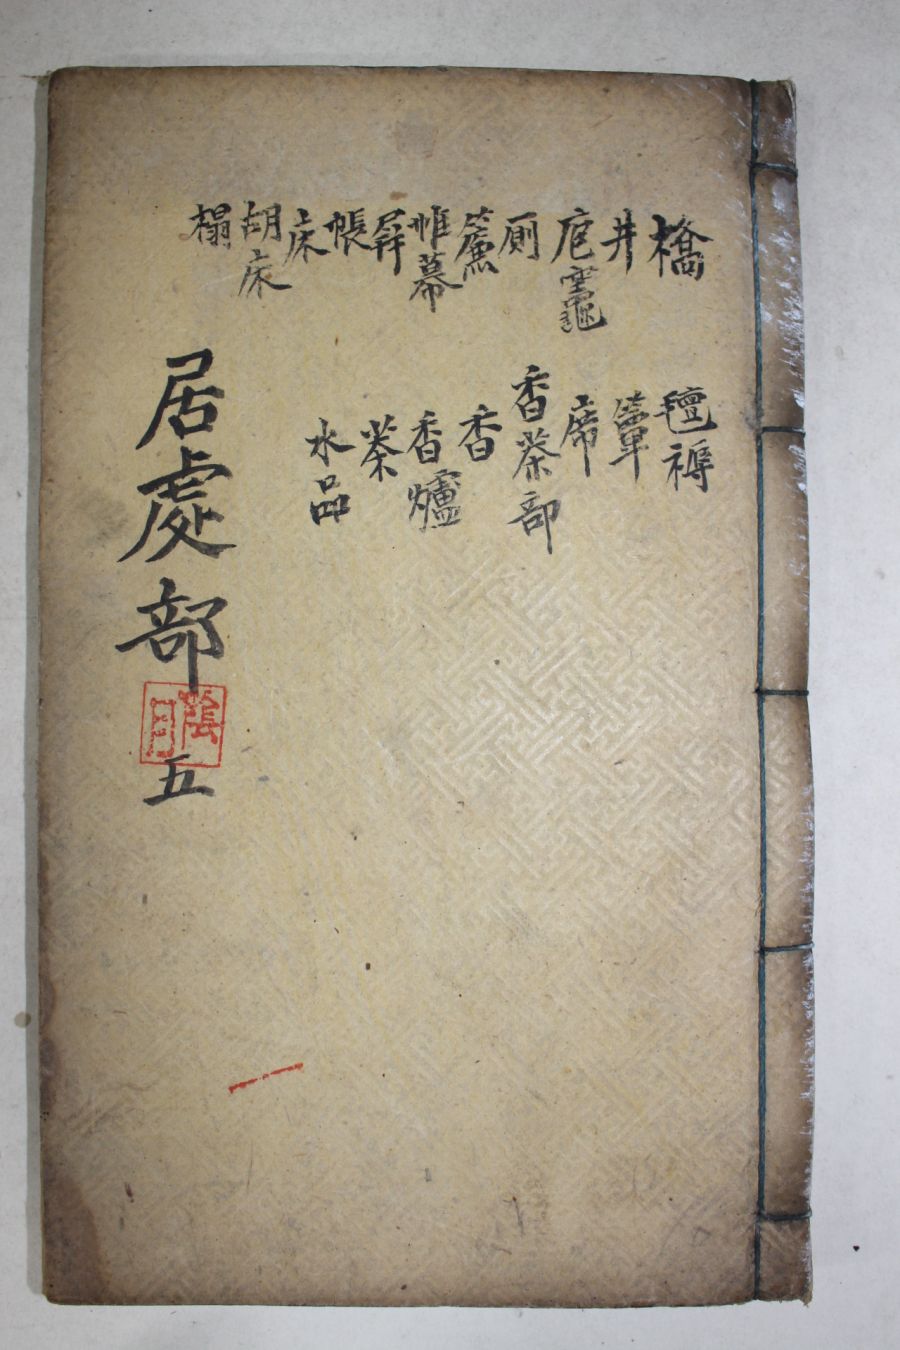 橋
井
庖竈
厠
簾
帷幕
屛
帳
床
胡床
榻
氊褥
簟
席
香茶部
香
香爐
茶
水品
居處部
五